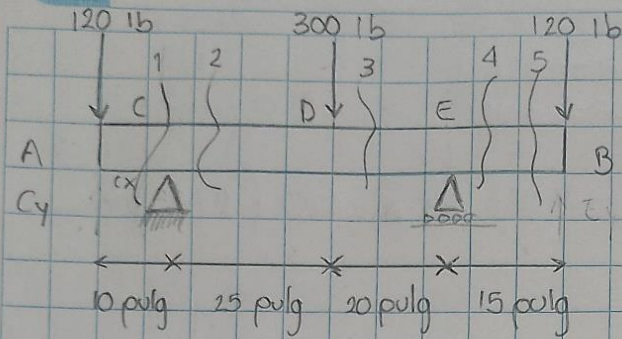 120 lb 300 lb 120 lb
1 2 3 4 5
C D E
A B
Cx
Cy
10 pulg 25 pulg 20 pulg 15 pulg